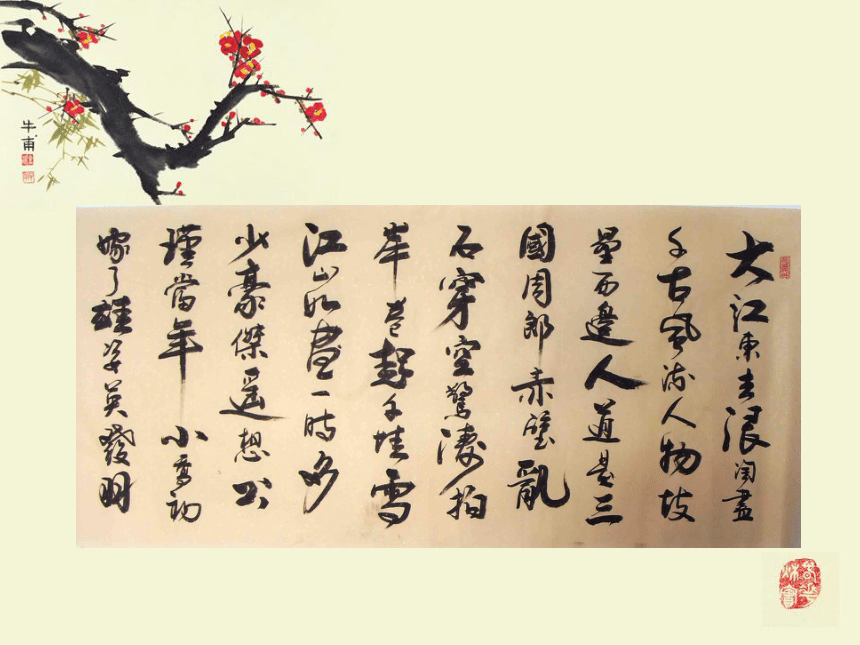 牛甫
大江東去浪淘盡
千古風流人物故
壘西邊人道是三
國周郎赤壁亂
石穿空驚濤拍
岸卷起千堆雪
江山如畫一時多
少豪傑遥想公
瑾當年小喬初
嫁了雄姿英發羽